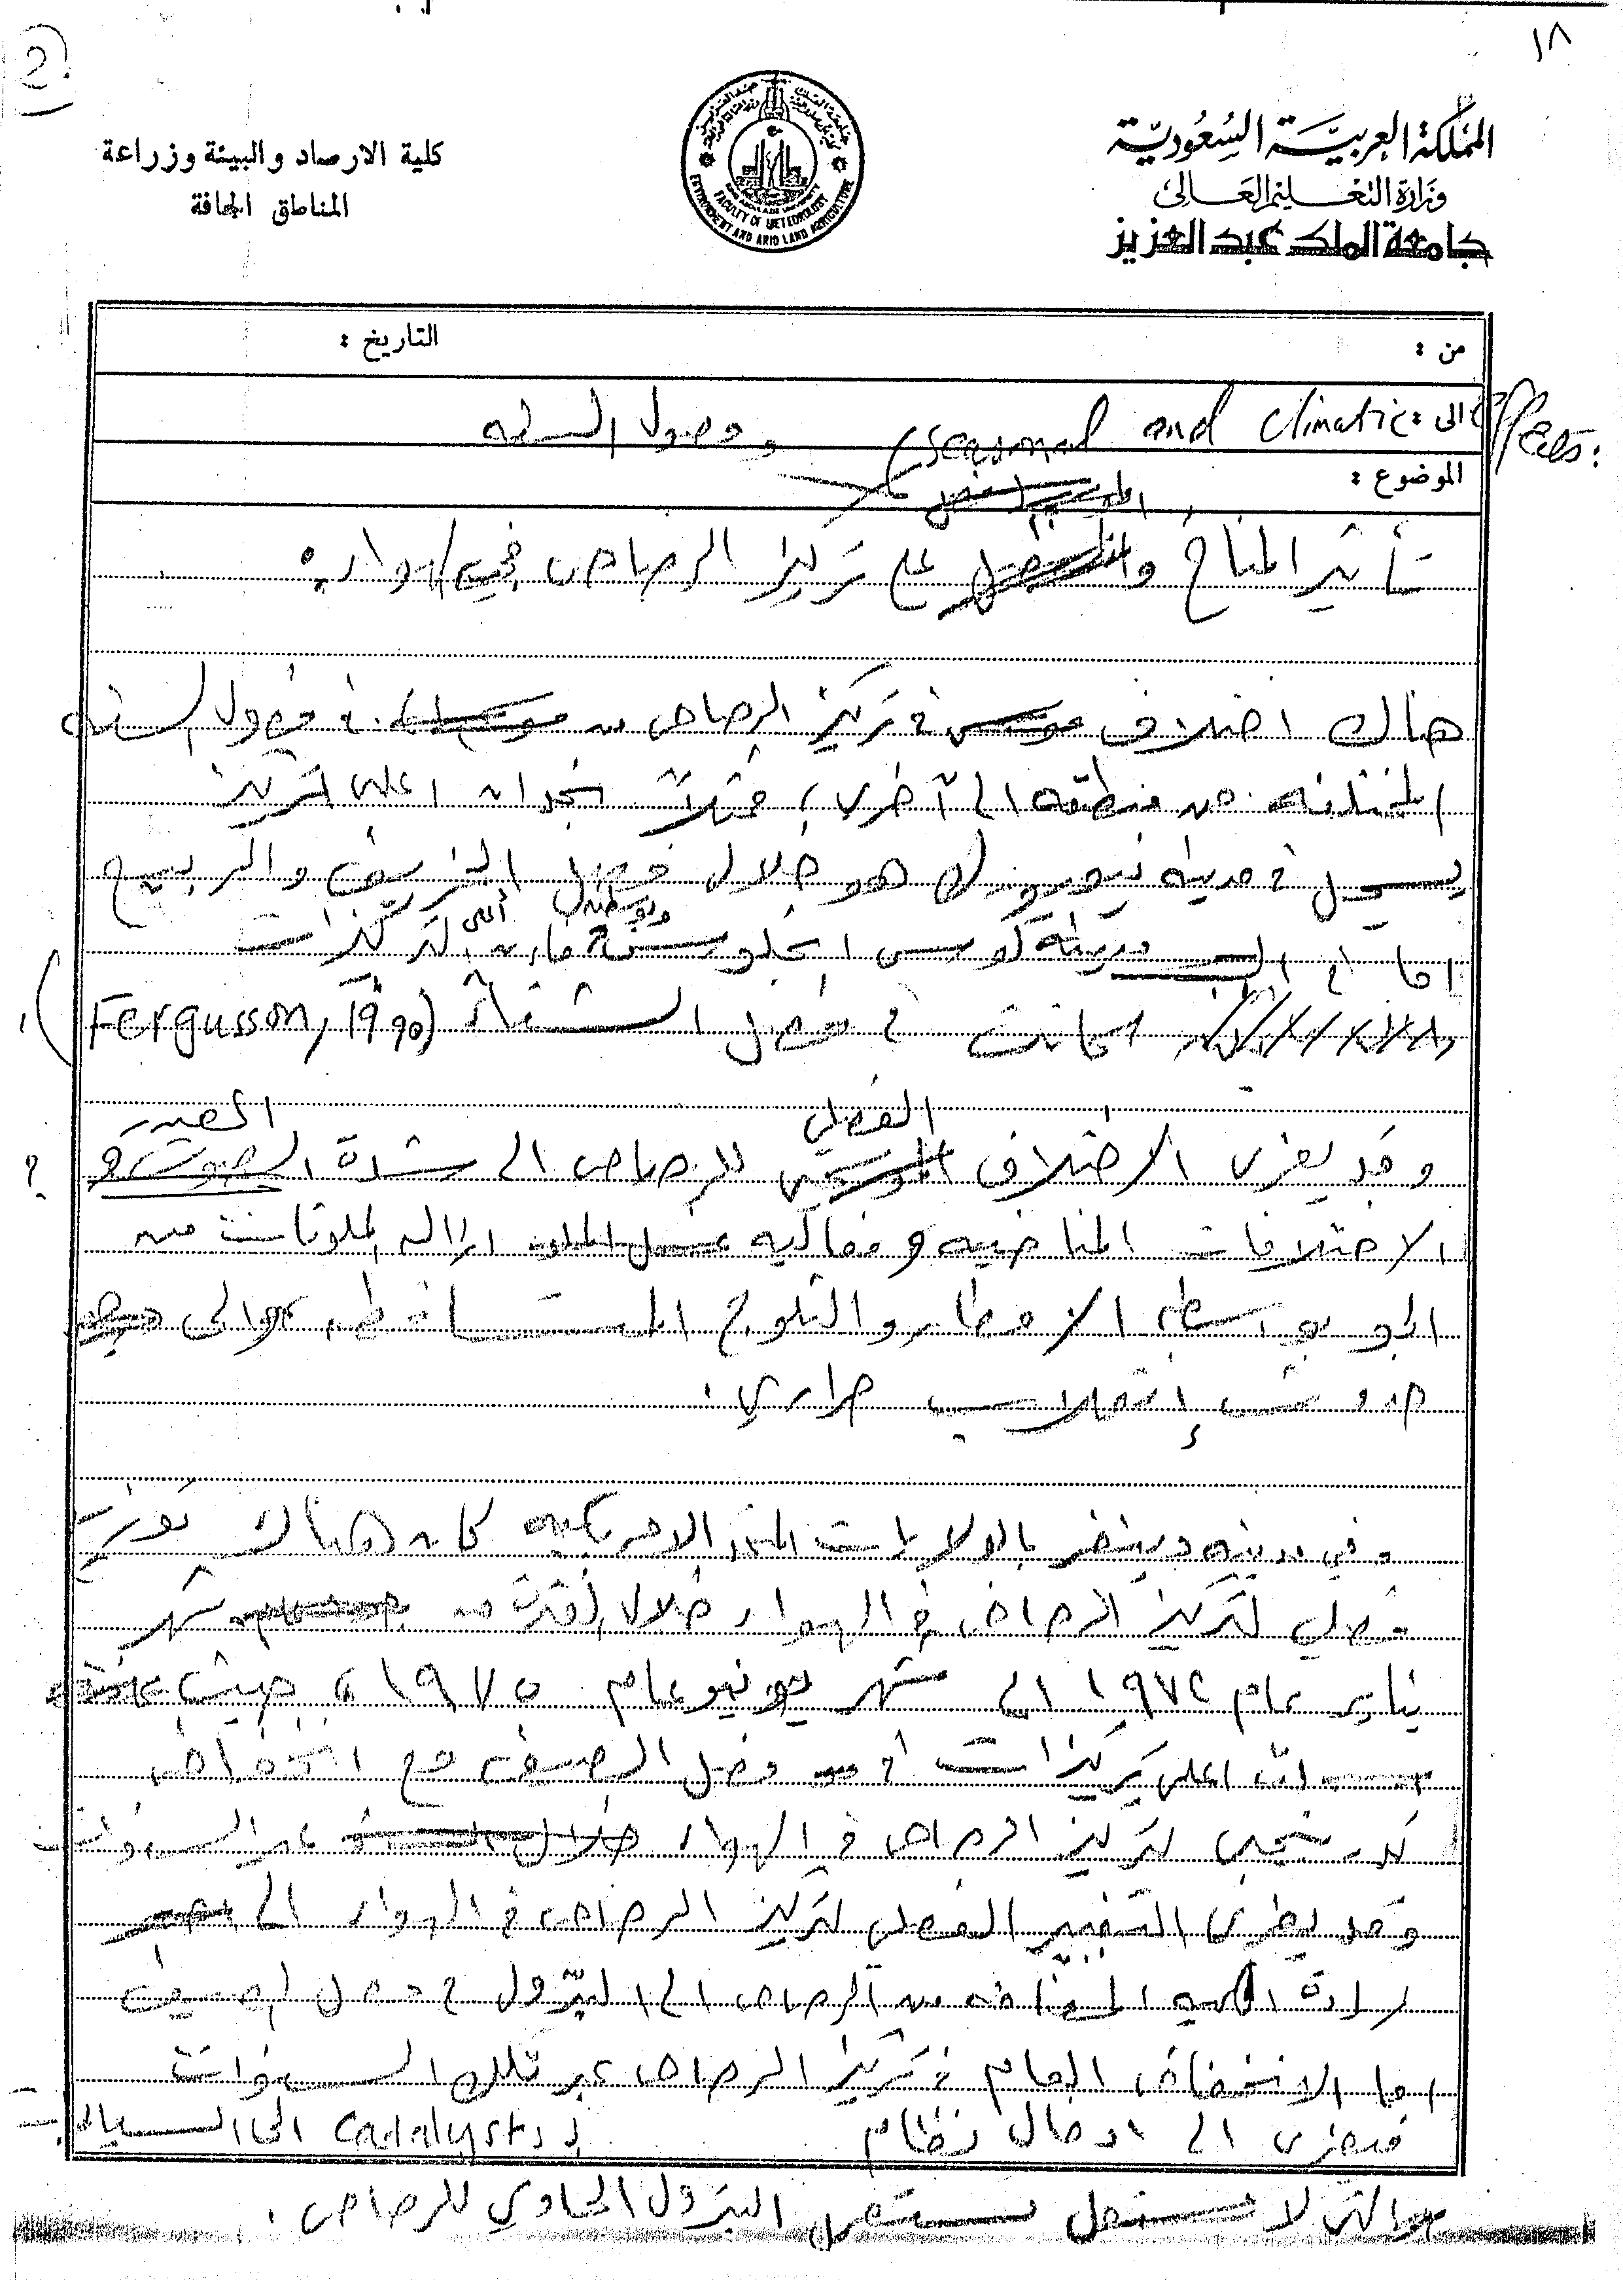 ١٨
2
المملكة العربية السعودية
وزارة التعليم العالي
جامعة الملك عبد العزيز
كلية الارصاد والبيئة وزراعة
المناطق الجافة
FACULTY OF METEOROLOGY
ENVIRONMENT AND ARID LAND AGRICULTURE
من :
التاريخ :
الى : Seasonal and Climatic effects: وفصول السنه
الموضوع :
تأثير المناخ و على تركيز الرصاص في الهواء :
هناك اختلاف في تركيز الرصاص في فصول السنه
المختلفه من منطقه الى آخرى ، فمثلاً نجد ان اعلى تركيز
يسجل في مدينه نيويورك هو خلال فصل الخريف والربيع
اما في مدينه لوس انجلوس فان أعلى التركيزات
كانت في فصل الشتاء (Fergusson, 1990)
وقد يعزى الاختلاف الفصلي للرصاص الى شدة المصدر و
الاختلافات المناخيه وفعاليه ازاله الملوثات من
الجو بواسطه الامطار والثلوج المتساقطه والى
حدوث إنقلاب حراري .
وفي مدينه دينفر بالولايات المتحده الامريكيه كان هناك توزيع
فصلي لتركيز الرصاص في الهواء خلال الفترة من شهر
يناير عام ١٩٧٤ الى شهر يونيو عام ١٩٧٥ ، حيث
اعلى تركيزات في فصل الصيف مع انخفاض
تدريجي لتركيز الرصاص في الهواء عبر السنوات
وقد يعزى التغير الفصلي لتركيز الرصاص في الهواء الى
زيادة الكميه المضافه من الرصاص الى البترول في فصل الصيف
اما الانخفاض العام في تركيز الرصاص عبر تلك السنوات
فيعزى الى ادخال نظام Catalysts الى السيارات
والتي لا تستعمل البترول الحاوي للرصاص .